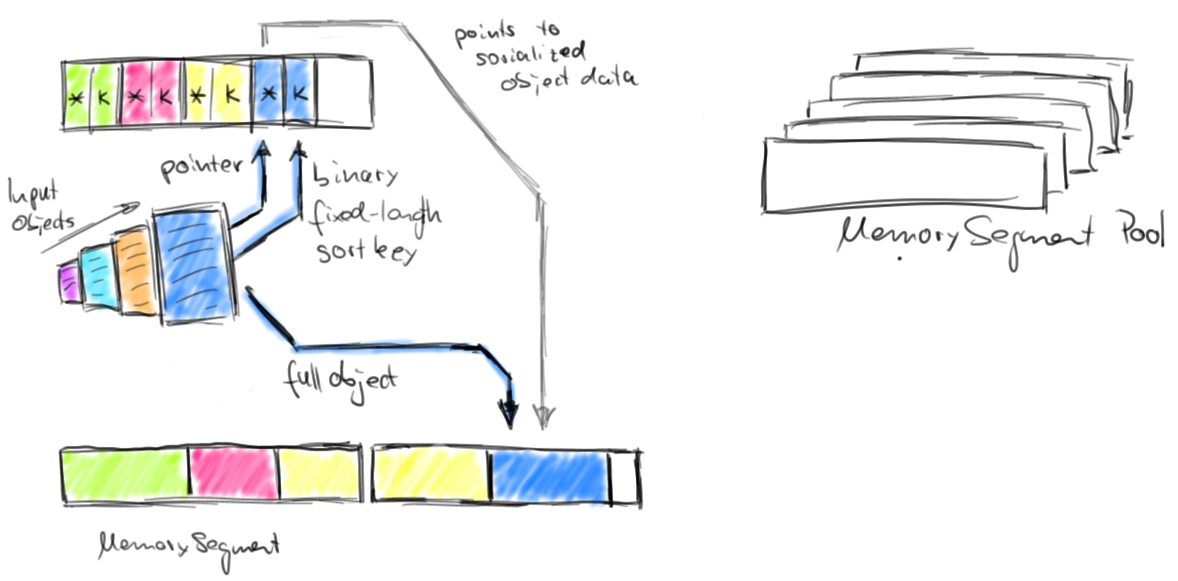 points to
serialized
object data
* K * K * K * K
pointer
binary
fixed-length
sort key
Input
Objects
full object
MemorySegment Pool
MemorySegment